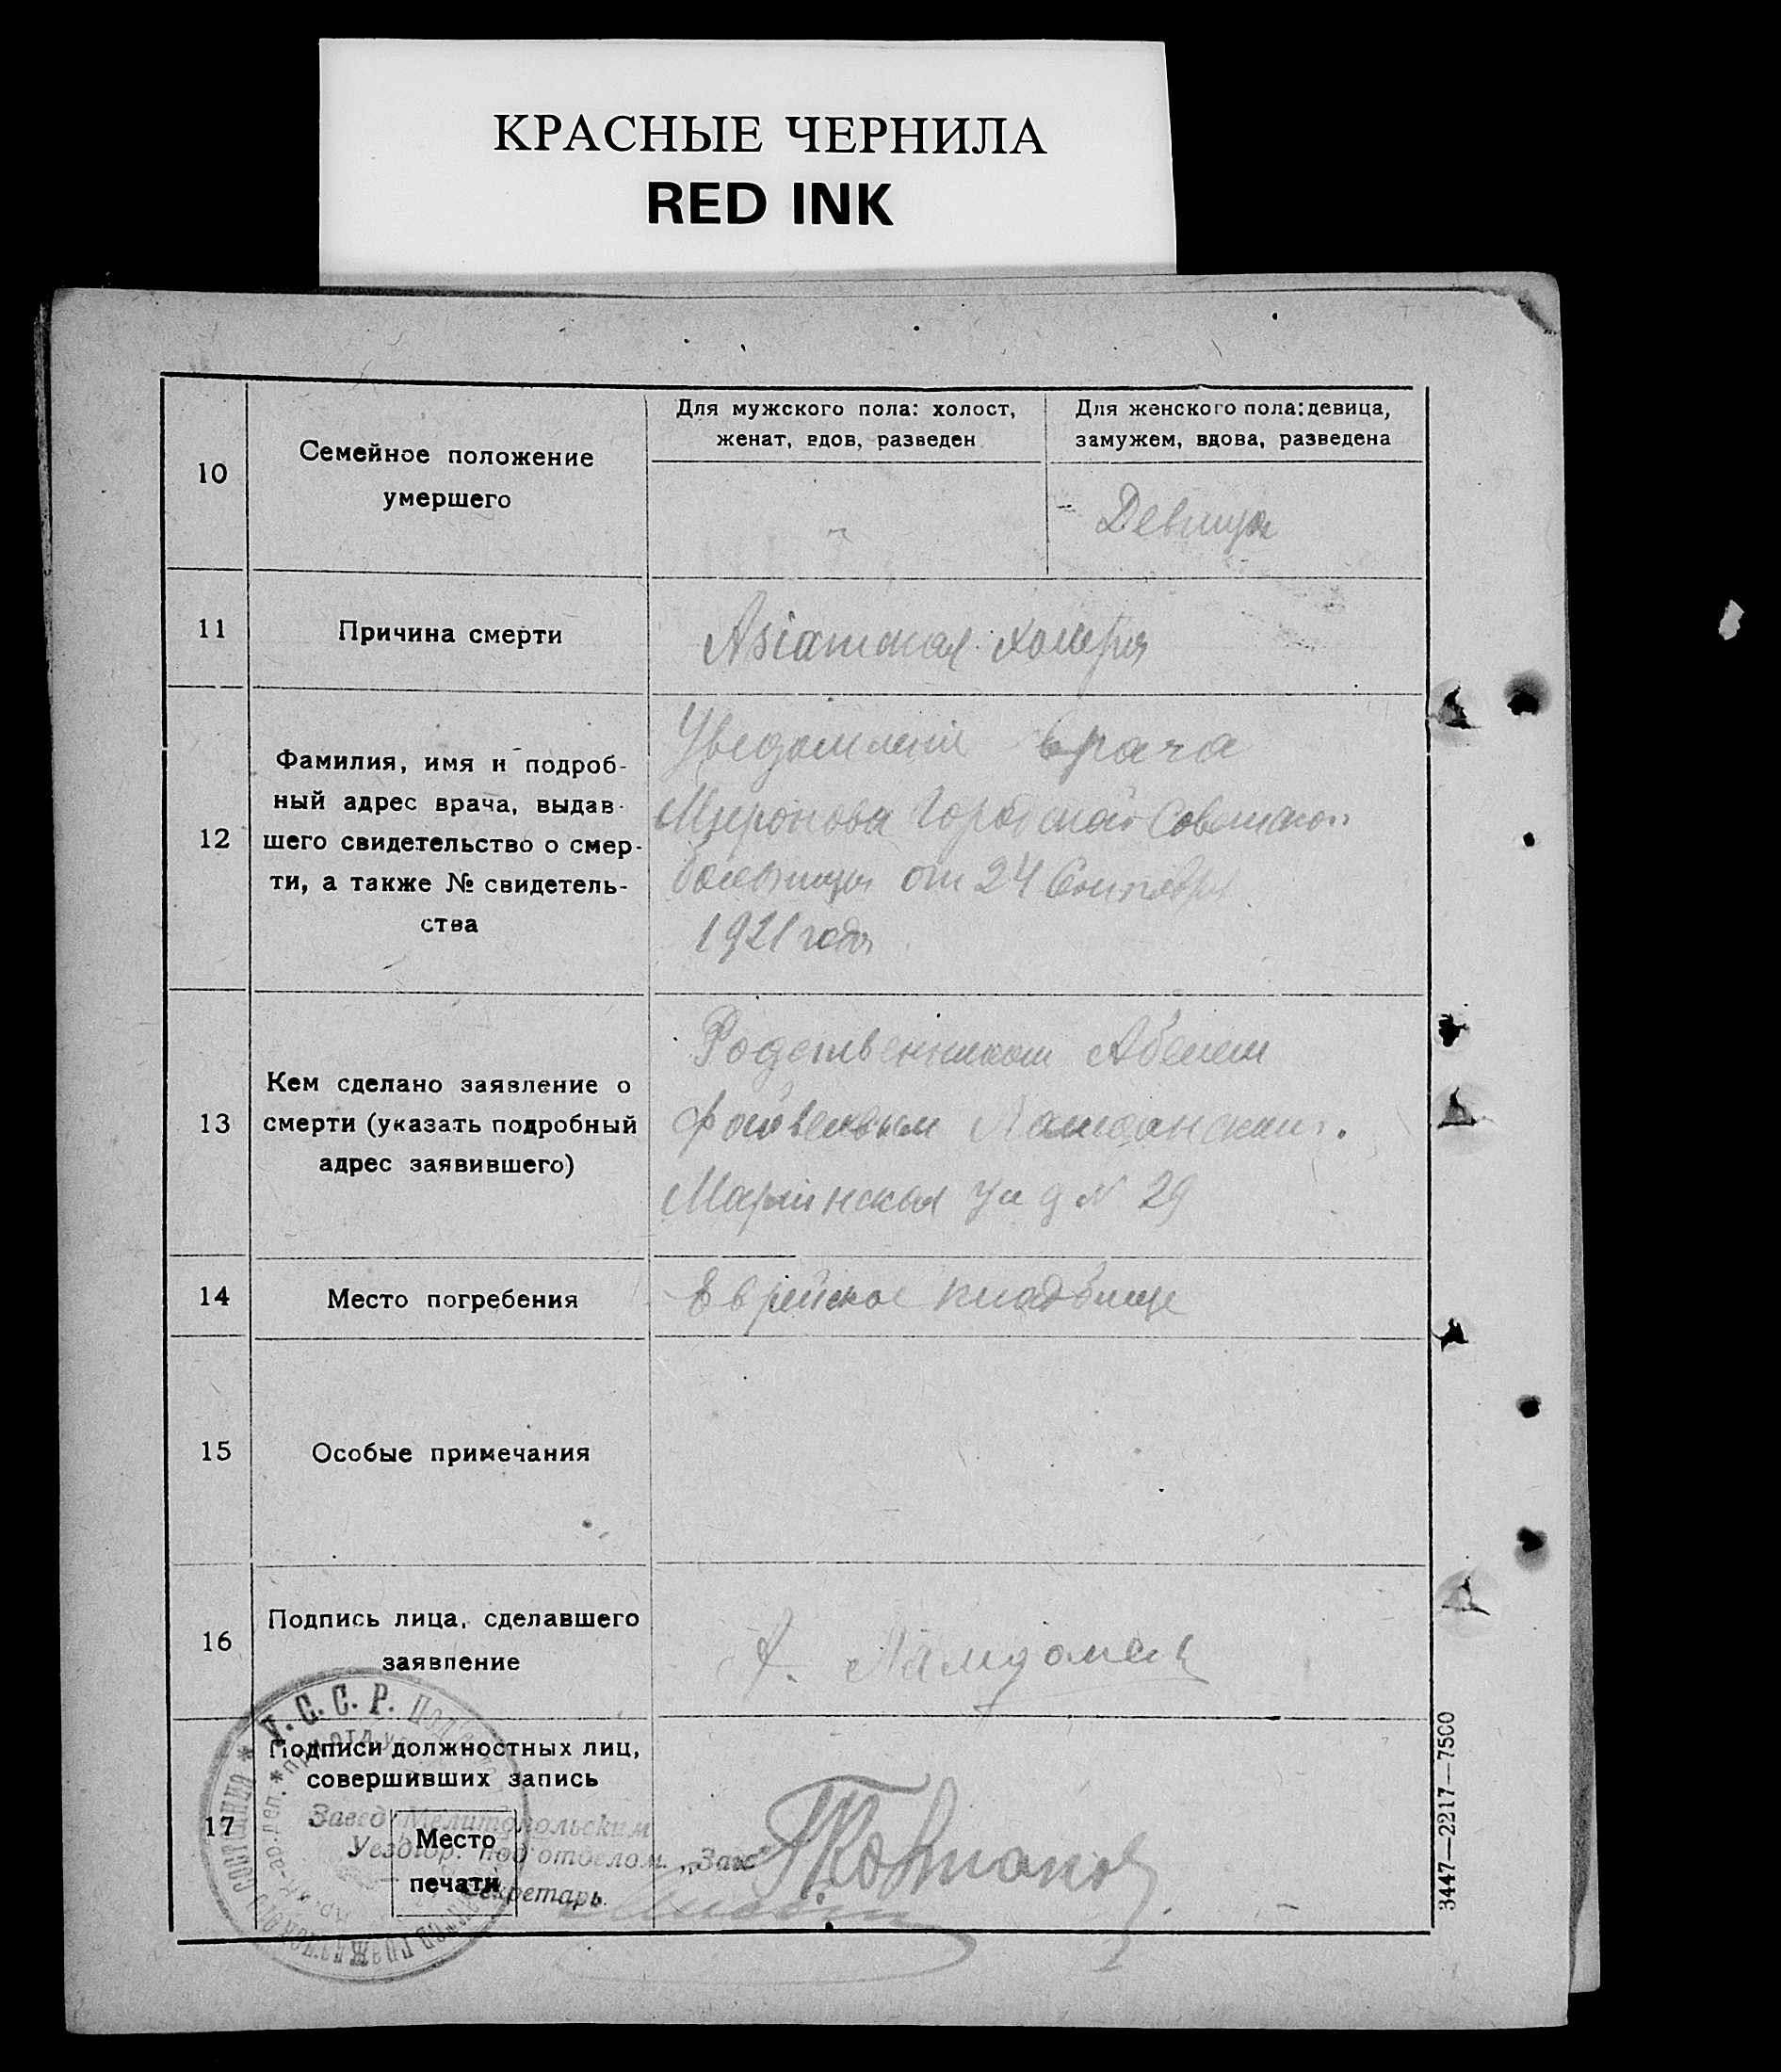 КРАСНЫЕ ЧЕРНИЛА
RED INK
10
Семейное положение
умершего
Для мужского пола: холост,
женат, вдов, разведен
Для женского пола: девица,
замужем, вдова, разведена
Девица
11
Причина смерти
Азіатская холера
12
Фамилия, имя и подроб-
ный адрес врача, выдав-
шего свидетельство о смер-
ти, а также № свидетель-
ства
врача
Городской Советской
больницы от 24 Сентября
1921 года
13
Кем сделано заявление о
смерти (указать подробный
адрес заявившего)
Родственником Абелем
Файвелевым
Мариинская ул д N 29
14
Место погребения
Еврейское кладбище
15
Особые примечания
16
Подпись лица, сделавшего
заявление
А.
17
Подписи должностных лиц,
совершивших запись
Завед. Мелитопольским
Уездгор. под'отделом „Загс"
Место
печати
Секретарь
У.С.С.Р.
3447—2217—7500